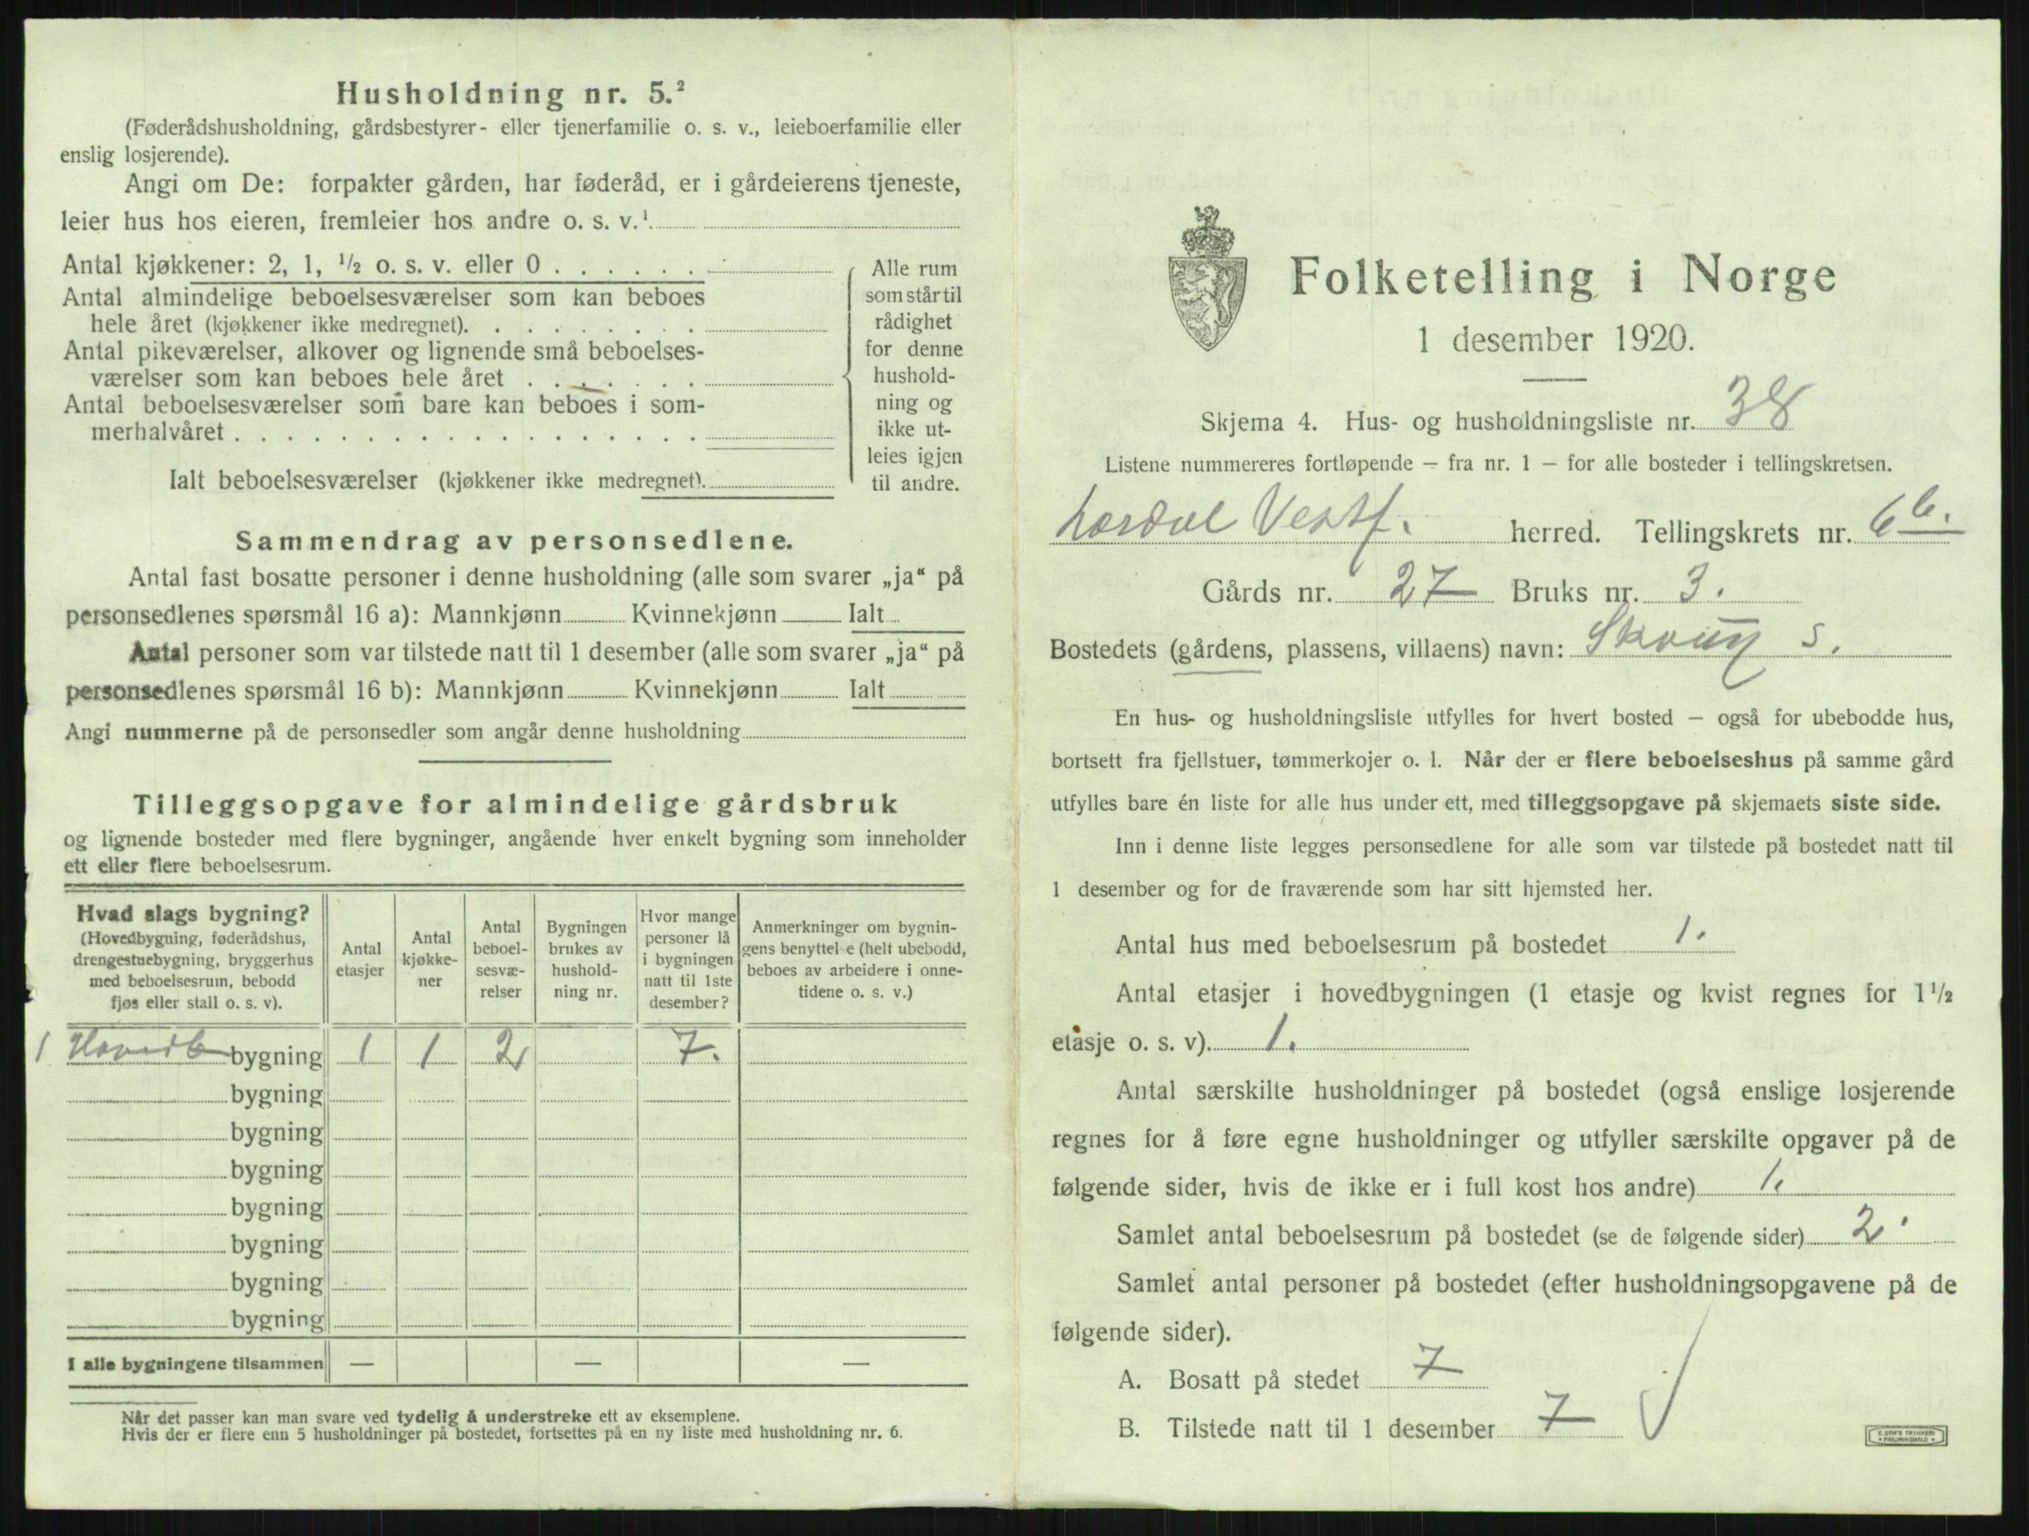 Husholdning nr. 5.²
(Føderådshusholdning, gårdsbestyrer- eller tjenerfamilie o. s. v., leieboerfamilie eller
enslig losjerende).
Angi om De: forpakter gården, har føderåd, er i gårdeierens tjeneste,
leier hus hos eieren, fremleier hos andre o. s. v.¹
Antal kjøkkener: 2, 1, ½ o. s. v. eller 0 . . . . . .
Antal almindelige beboelsesværelser som kan beboes
hele året (kjøkkener ikke medregnet). . . . . . . . .
Antal pikeværelser, alkover og lignende små beboelses-
værelser som kan beboes hele året . . . . . . .
Antal beboelsesværelser som bare kan beboes i som-
merhalvåret . . . . . . . . . . . . . . . . . .
Ialt beboelsesværelser (kjøkkener ikke medregnet).
Alle rum
som står til
rådighet
for denne
hushold-
ning og
ikke ut-
leies igjen
til andre.
Sammendrag av personsedlene.
Antal fast bosatte personer i denne husholdning (alle som svarer „ja“ på
personsedlenes spørsmål 16 a): Mannkjønn Kvinnekjønn Ialt
Antal personer som var tilstede natt til 1 desember (alle som svarer „ja“ på
personsedlenes spørsmål 16 b): Mannkjønn Kvinnekjønn Ialt
Angi nummerne på de personsedler som angår denne husholdning
Tilleggsopgave for almindelige gårdsbruk
og lignende bosteder med flere bygninger, angående hver enkelt bygning som inneholder
ett eller flere beboelsesrum.
Hvad slags bygning?
(Hovedbygning, føderådshus,
drengestuebygning, bryggerhus
med beboelsesrum, bebodd
fjøs eller stall o. s. v).
Antal
etasjer
Antal
kjøkke-
ner
Antal
beboel-
sesvæ-
relser
Bygningen
brukes av
hushold-
ning nr.
Hvor mange
personer lå
i bygningen
natt til 1ste
desember?
Anmerkninger om bygnin-
gens benyttel e (helt ubebodd,
beboes av arbeidere i onne-
tidene o. s. v.)
1 Hovedb bygning 1 1 2 7.
bygning
bygning
bygning
bygning
bygning
bygning
bygning
I alle bygningene tilsammen — — —
Når det passer kan man svare ved tydelig å understreke ett av eksemplene.
Hvis der er flere enn 5 husholdninger på bostedet, fortsettes på en ny liste med husholdning nr. 6.
Folketelling i Norge
1 desember 1920.
Skjema 4. Hus- og husholdningsliste nr. 38
Listene nummereres fortløpende — fra nr. 1 — for alle bosteder i tellingskretsen.
Lardal Vestf. herred. Tellingskrets nr. 6 b.
Gårds nr. 27 Bruks nr. 3.
Bostedets (gårdens, plassens, villaens) navn: Skoug s.
En hus- og husholdningsliste utfylles for hvert bosted — også for ubebodde hus,
bortsett fra fjellstuer, tømmerkojer o. l. Når der er flere beboelseshus på samme gård
utfylles bare én liste for alle hus under ett, med tilleggsopgave på skjemaets siste side.
Inn i denne liste legges personsedlene for alle som var tilstede på bostedet natt til
1 desember og for de fraværende som har sitt hjemsted her.
Antal hus med beboelsesrum på bostedet 1.
Antal etasjer i hovedbygningen (1 etasje og kvist regnes for 1½
etasje o. s. v). 1.
Antal særskilte husholdninger på bostedet (også enslige losjerende
regnes for å føre egne husholdninger og utfyller særskilte opgaver på de
følgende sider, hvis de ikke er i full kost hos andre) 1.
Samlet antal beboelsesrum på bostedet (se de følgende sider) 2.
Samlet antal personer på bostedet (efter husholdningsopgavene på de
følgende sider).
A. Bosatt på stedet 7
B. Tilstede natt til 1 desember 7